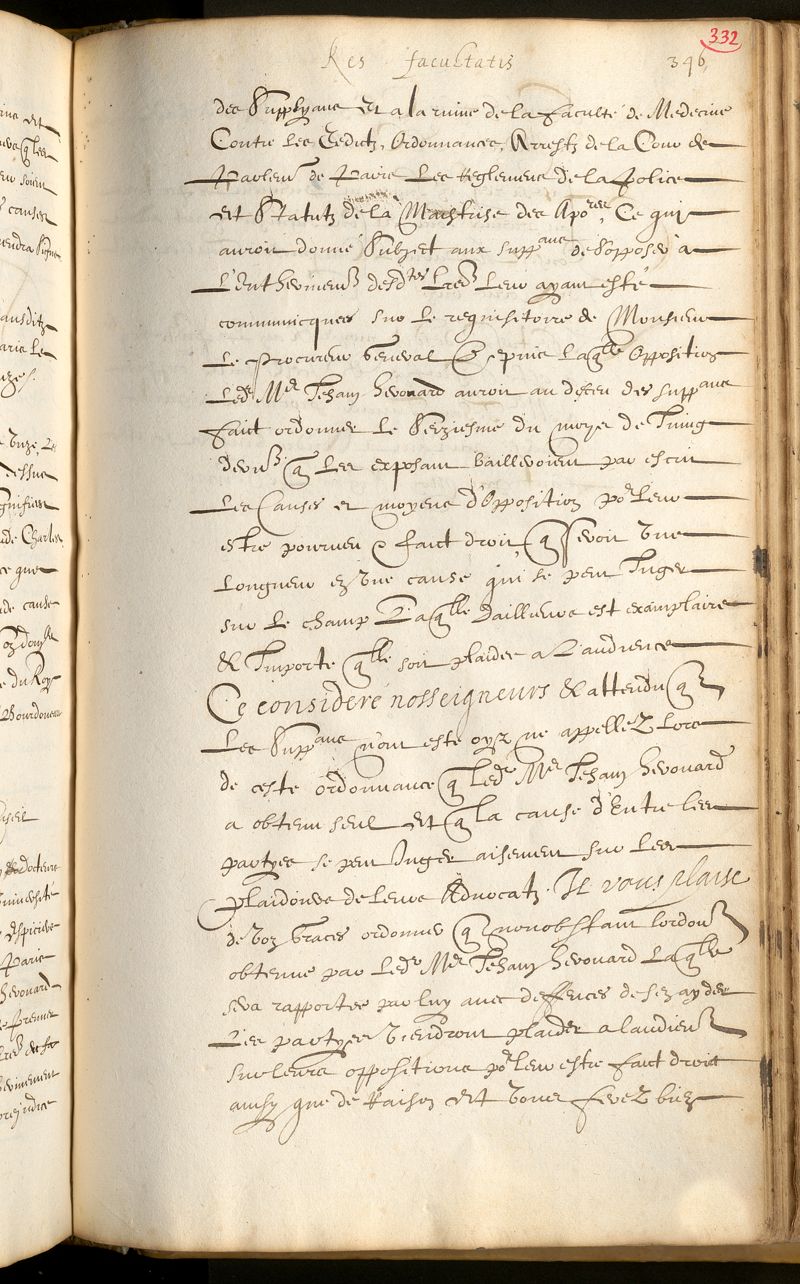 332
Res facultatis 346
des Supplyans et a la ruine de la faculté de Medecine
Contre Les Edictz, Ordonnances, Arrestz de la Cour de
Parlemt de Paris Les Reglemens de la police
et Statutz de la Maistrise des Apores, Ce qui
auroit donné Subject aux suppans de Sopposer a
L'entherinemt desdtes Lres Leur ayant esté
communicquees sur le requisitoire de Monsieur
Le Procureur General & depuis Laqlle Opposition
Ledt Me Jehan Herouard auroit au desceu des suppans
faict ordonner le Seziesme du moys de Juing
dernr q Les exposans bailleroient par escrit
Les Causes et moyens d'Opposition por Leur
estre pourveu & faict droit, q seroit Une
Longueur en Une cause qui se peut Juger
sur Le champ Laqlle dailleurs est examplaire
& Importe qlle soit plaidee a L'audience
Ce consideré nosseigneurs & attendu q
Les Suppans n'ont esté oyz ne appellez Lors
de ceste ordonnance q Ledt Me Jehan herouard
a obtenu seul et q la cause d'Entre les
partyes se peut Juger aisement sur Les
plaidoyes de leurs Advocatz. Il vous plaise
de Voz Graces ordonner q nonobstant lordonce
obtenue par Ledt Me Jehan herouard Laqlle
sera rapportee par luy avec deffences de sen ayder
Les partyes Viendront plaider a laudience
sur leurs oppositions por leur estre faict droict
ainsy que de Raison et Vous ferez bien